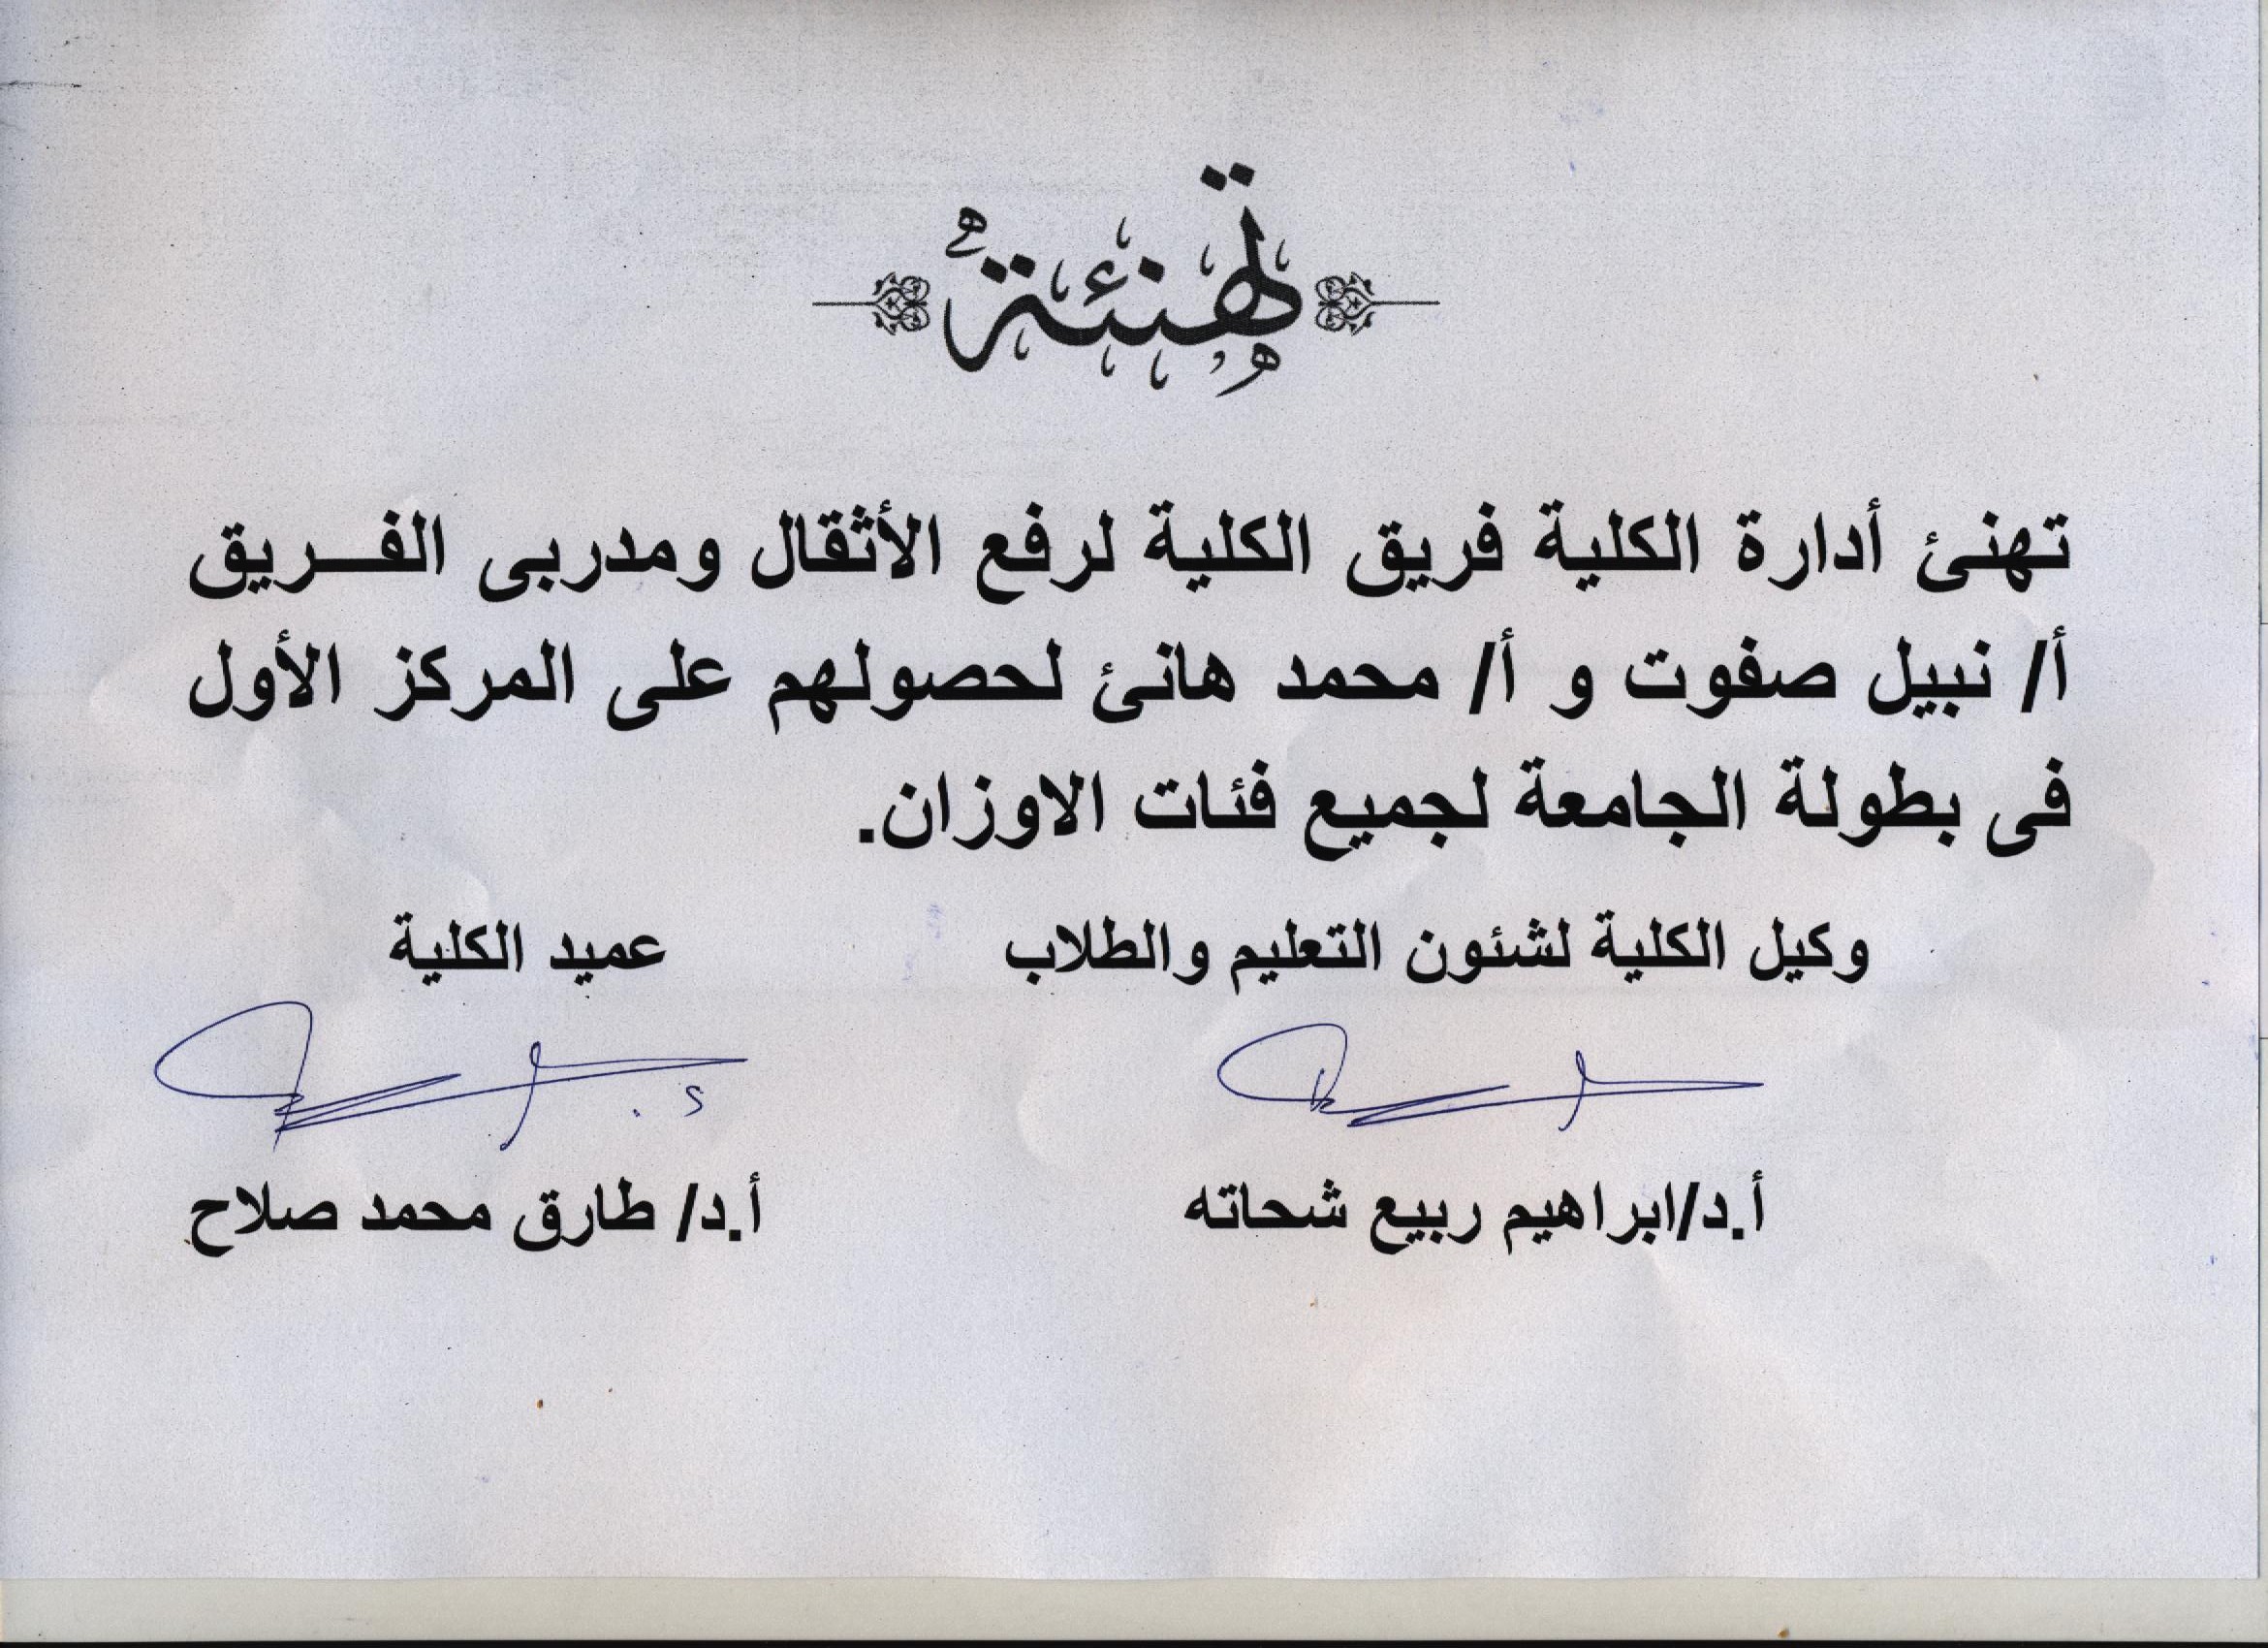 تهنئة
تهنئ أدارة الكلية فريق الكلية لرفع الأثقال ومدربى الفـــريق
أ/ نبيل صفوت و أ/ محمد هانئ لحصولهم على المركز الأول
فى بطولة الجامعة لجميع فئات الاوزان.
وكيل الكلية لشئون التعليم والطلاب
عميد الكلية
أ.د/ابراهيم ربيع شحاته
أ.د/ طارق محمد صلاح